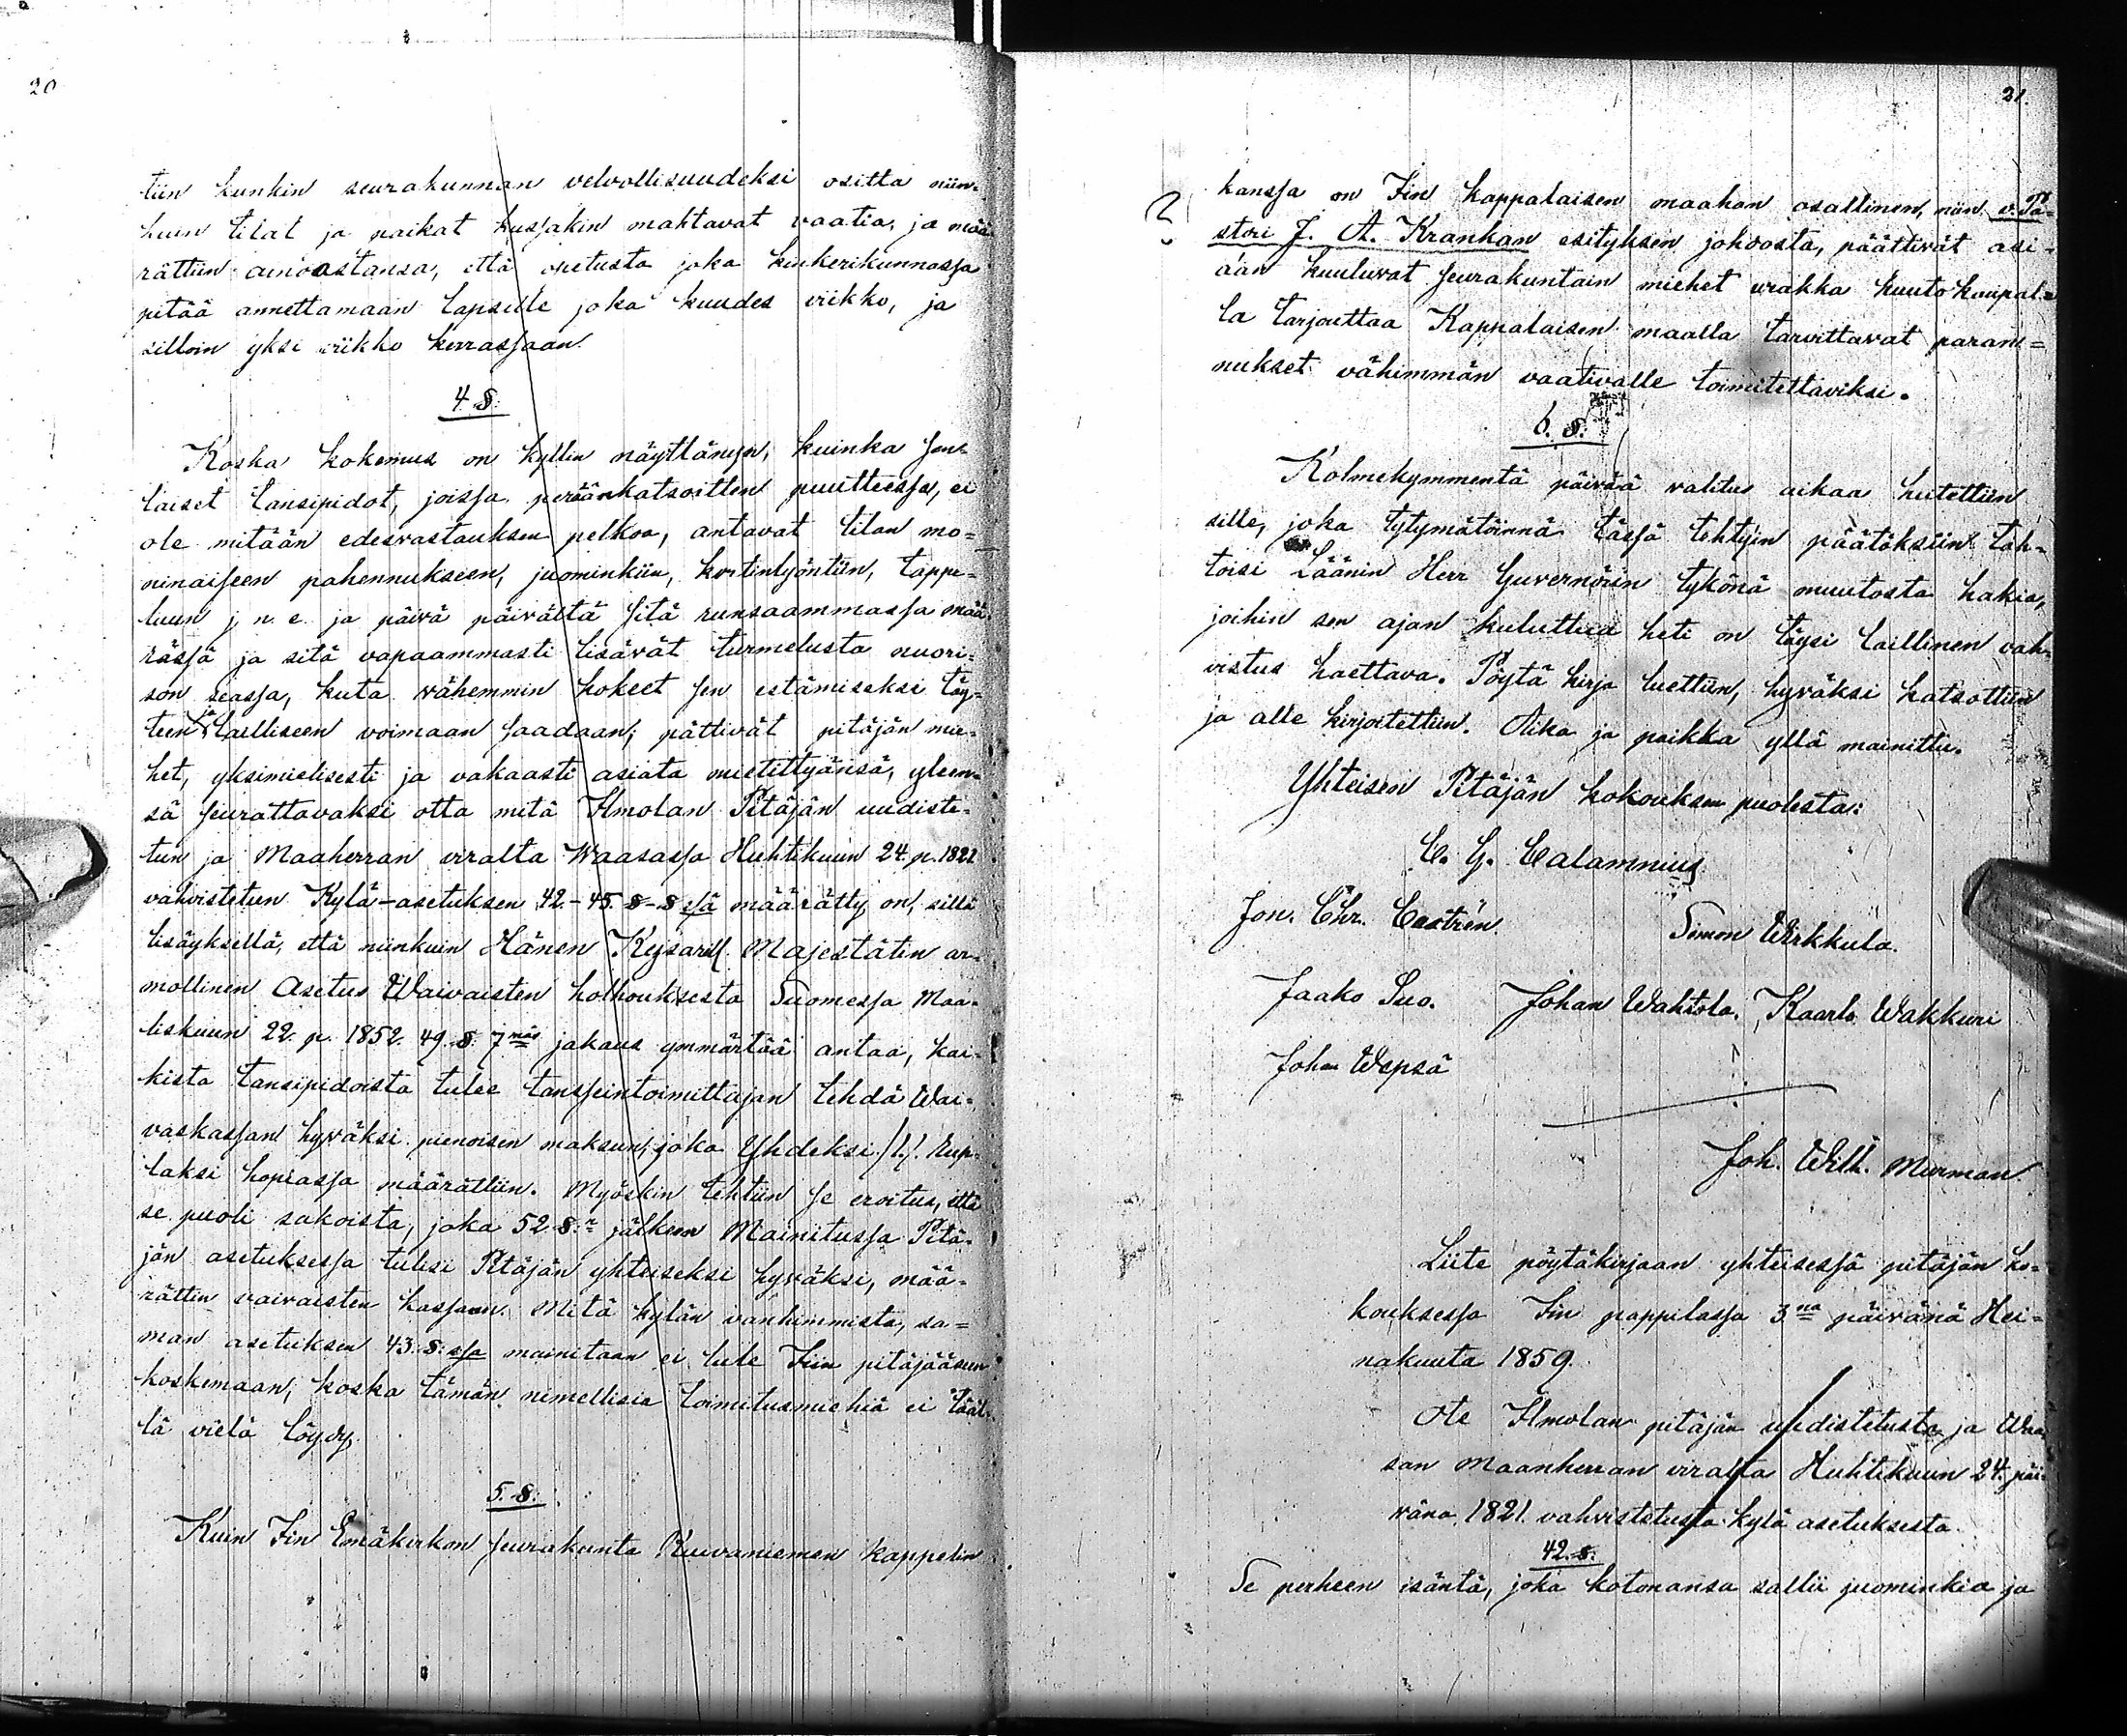 20
tiin kunkin seurakunnan velvollisuudeksi ositta niin-
kuin tilat ja paikat kussakin mahtavat vaatia, ja mää-
rättiin ainoastansa, että opetusta joka kinkerikunnassa
pitää annettamaan lapsille joka kuudes viikko, ja
silloin yksi viikko kerrassaan.
4. §.
Koska kokemus on kyllin näyttänyt, kuinka sen-
laiset tansipidot, joissa peräänkatsoitten puutteessa, ei
ole mitään edesvastauksen pelkoa, antavat tilan mo-
ninaiseen pahennukseen, juominkiin, kortinlyöntiin, tappe-
luun j. n. e. ja päivä päivältä sitä runsaammassa mää-
rässä ja sitä vapaammasti lisävät turmelusta nuori-
son seassa, kuta vähemmin kokeet sen estämiseksi täy-
teen ja lailliseen voimaan saadaan; pättivät pitäjän mie-
het, yksimielisesti ja vakaasti asiata mietittyänsä, yleen-
sä seurattavaksi otta mitä Ilmolan Pitäjän uudiste-
tun ja Maaherran viralta Waasassa Huhtikuun 24. p. 1821
vahvistetun Kylä-asetuksen 42.-45. §-§ssä määrätty on, sillä
lisäyksellä, että niinkuin Hänen Keisarll. Majestätin ar-
mollinen Asetus Waivaisten holhouksesta Suomessa Maa-
liskuun 22. p. 1852. 49. §. 7mäs jakaus ymmärtää antaa, kai-
kista tansipidoista tulee tansseintoimittajan tehdä Wai-
vaskassan hyväksi pienoisen maksun, joka Yhdeksi /1./ Rup-
laksi hopiassa määrättiin. Myöskin tehtiin se eroitus, että
se puoli sakoista, joka 52 §:n jälkeen Mainitussa Pitä-
jän asetuksessa tulisi Pitäjän yhteiseksi hyväksi, mää-
rättin vaivaisten kassaan. Mitä kylän vanhimmista, sa-
man asetuksen 43. §:ssa mainitaan ei tule Iin pitäjääsen
koskemaan, koska tämän nimellisiä toimitusmiehiä ei tääl-
lä vielä löydy.
5. §.
Kuin Iin Emäkirkon seurakunta Kuivaniemen kappelin
21.
kanssa on Iin kappalaisen maahan osallinen, niin v. Pa-
stori J. A. Krankan esityksen johdosta, päättivät asi-
aan kuuluvat seurakuntain miehet urakka huuto kaupal-
la tarjouttaa Kappalaisen maalla tarvittavat paran-
nukset vähimmän vaativalle toimitettaviksi.
6. §.
Kolmekymmentä päivää valitus aikaa heitettiin
sille, joka tytymätöinnä tässä tehtyin päätöksiin tah-
toisi Läänin Herr Guvernörin tykönä muutosta hakia,
joihin sen ajan kuluttua heti on täysi laillinen vah-
vistus haettava. Pöytä kirja luettiin, hyväksi katsottiin
ja alle kirjoitettiin. Aika ja paikka yllä mainittu.
Yhteisen Pitäjän kokouksen puolesta:
C. G. Calamnius
Jon. Chr. Castrén. Simon Wirkkula.
Jaako Suo. Johan Wahtola. Kaarlo Wakkuri
Johan Wepsä
Joh. Wilh. Murman
Liite pöytäkirjaan yhteisessä pitäjän ko-
kouksessa Iin pappilassa 3na päivänä Hei-
nakuuta 1859.
Ote Ilmolan pitäjän uudistetusta ja Waa-
san Maanherran viralta Huhtikuun 24. päi-
vänä 1821. vahvistetusta kylä asetuksesta.
42. §.
Se perheen isäntä, joka kotonansa sallii juominkia ja